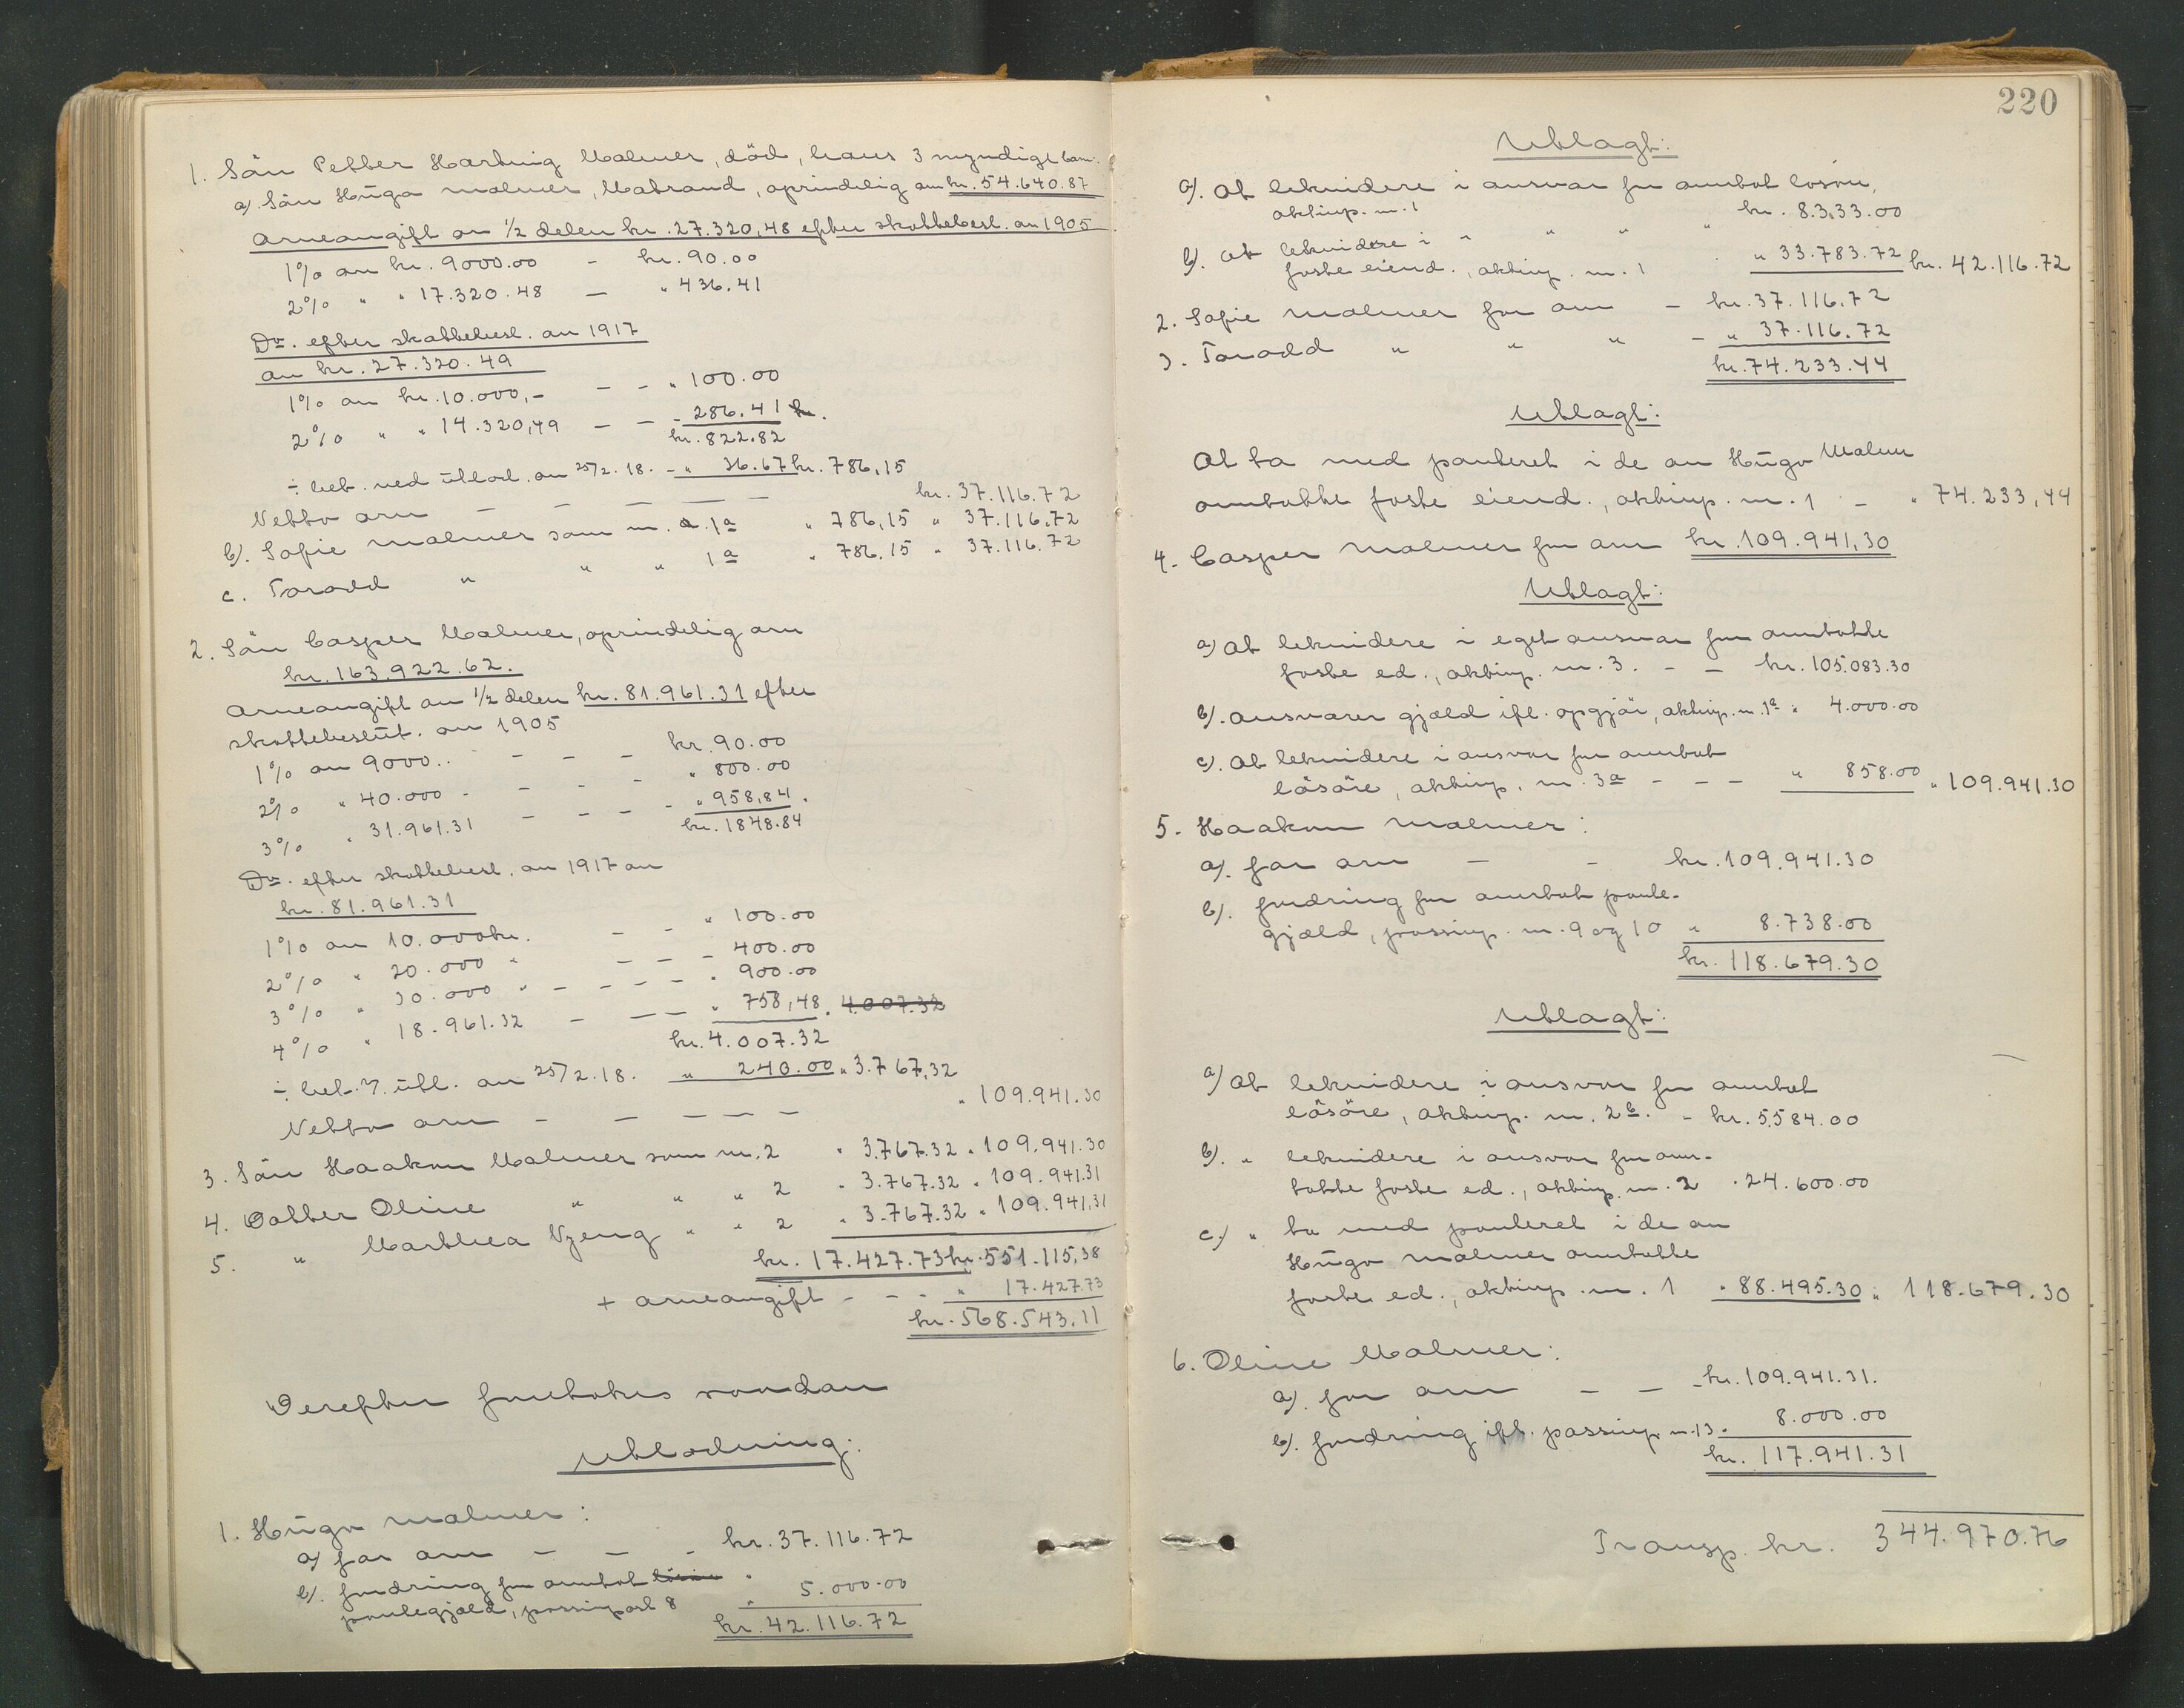 1. Sön Petter Hartvig Malmer, död, hans 3 myndige barn:
a). Sön Hugo Malmer, Matrand, oprindelig arv kr. 54.640.87
Arveavgift av 1/2 delen kr. 27.320,48 efter skattebesl. av 1905
1% av kr. 9000.00 – kr. 90.00
2% " " 17.320.48 — " 436.41
Do. efter skattebesl. av 1917
av kr. 27.320.49
1% av kr. 10.000,- — - " 100.00
2% " " 14.320,49 — — - 286.41 kr.
kr. 822.82
÷ bet. ved utlod. av 25/2.18. - " 36.67 kr. 786,15
Netto arv — — — — kr. 37.116.72
b). Sofie Malmer som nr. a. 1a " 786,15 " 37.116,72
c. Torodd " " " 1a " 786.15 " 37.116.72
2. Sön Casper Malmer, oprindelig arv
kr. 163.922.62.
Arveavgift av 1/2 delen kr. 81.961.31 efter
skattebeslut. av 1905
1% av 9000.. - - - kr. 90.00
2% " 40.000 - - - - " 800.00
3% " 31.961.31 - - - - " 958,84.
kr. 1848.84
Do. efter skattebesl. av 1917 av
kr. 81.961.31
1% av 10.000 kr. - - " 100.00
2% " 20.000 " - - - 400.00
3% " 30.000 " - - - - " 900.00
4% " 18.961.32 - - - " 758,48. 4.007.32
kr. 4.007.32
÷ bet. v. utl. av 25/2.18. " 240.00 " 3.767,32
Netto arv - - - - - " 109.941.30
3. Sön Haakon Malmer som nr. 2 " 3.767.32 " 109.941.30
4. Datter Oline " " " 2 " 3.767.32 " 109.941.31
5. " Marthea Njeng " " 2 " 3.767.32 " 109.941,31
kr. 17.427.73 kr. 551.115,38
+ arveavgift - - - " 17.427.73
kr. 568.543.11
Derefter foretokes saadan
Utlodning:
1. Hugo Malmer:
a) for arv - - - kr. 37.116.72
b). fordring for overtat lösöre "
pantegjæld, passivpost 8 " 5.000.00
kr. 42.116.72
220
Utlagt:
a). At lekvidere i ansvar for overtat lösöre,
aktivp. nr. 1 kr. 8.333.00
b). at lekvidere i " " " "
faste eiend., aktivp. nr. 1 " 33.783.72 kr. 42.116.72
2. Sofie Malmer for arv - kr. 37.116.72
3. Torodd " " " - " 37.116.72
kr. 74.233.44
Utlagt:
At ta med panteret i de av Hugo Malmer
overtatte faste eiend., aktivp. nr. 1 - " 74.233,44
4. Casper Malmer for arv kr. 109.941,30
Utlagt:
a) At lekvidere i eget ansvar for overtatte
faste ed., aktivp. nr. 3. - - kr. 105.083.30
b). ansvarer gjæld ifl. opgjör, aktivp. nr. 1a " 4.000.00
c). At lekvidere i ansvar for overtat
lösöre, aktivp. nr. 3a - - - " 858.00 " 109.941.30
5. Haakon Malmer:
a). for arv - - kr. 109.941.30
b). fordring for overtat pante-
gjæld, passivp. nr. 9 og 10 " 8.738.00
kr. 118.679.30
Utlagt:
a) At lekvidere i ansvar for overtat
lösöre, aktivp. nr. 2b. - kr. 5.584.00
b). " lekvidere i ansvar for over-
tatte faste ed., aktivp. nr. 2 " 24.600.00
c) " ta med panteret i de av
Hugo Malmer overtatte
faste ed., aktivp. nr. 1 " 88.495.30 " 118.679.30
6. Oline Malmer:
a). for arv - - - kr. 109.941.31.
b). fordring ifl. passivp. nr. 13. 8.000.00
kr. 117.941.31
Transp. kr. 344.970.76